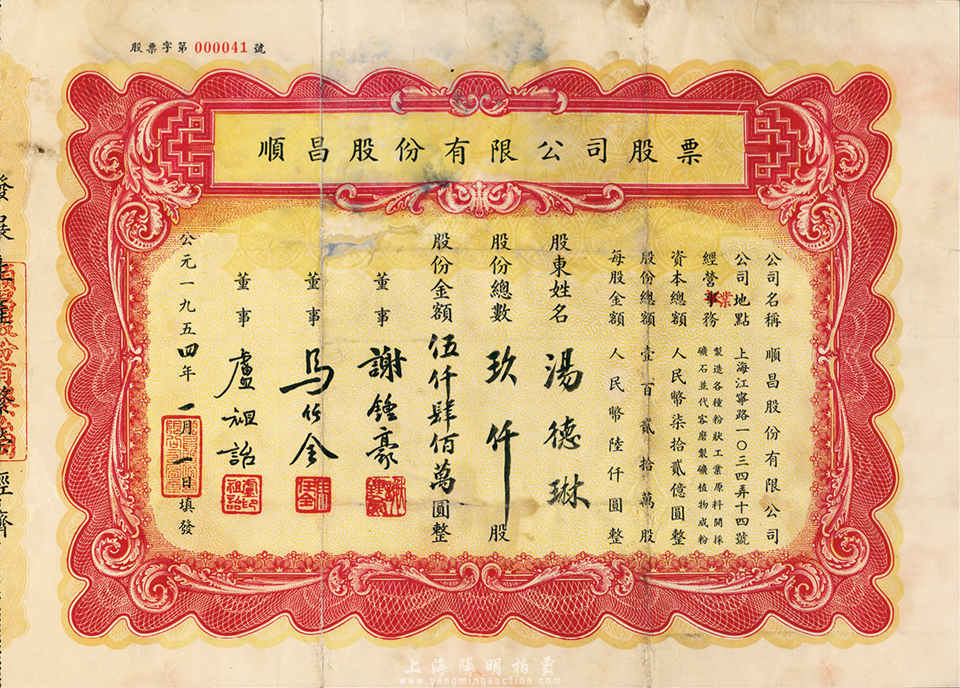 股票字第 000041 號
順昌股份有限公司股票
公司名稱 順昌股份有限公司
公司地點 上海江寧路一〇三四弄十四號
經營業務 製造各種粉狀工業原料開採
礦石並代客磨製礦植物成粉
資本總額 人民幣柒拾貳億圓整
股份總額 壹百貳拾萬股
每股金額 人民幣陸仟圓整
股東姓名 湯德琳
股份總數 玖仟股
股份金額 伍仟肆佰萬圓整
董事 謝鍾豪
董事 馬竹金
董事 盧祖詒
公元一九五四年一月一日填發
上海陽明拍賣
www.yangmingauction.com